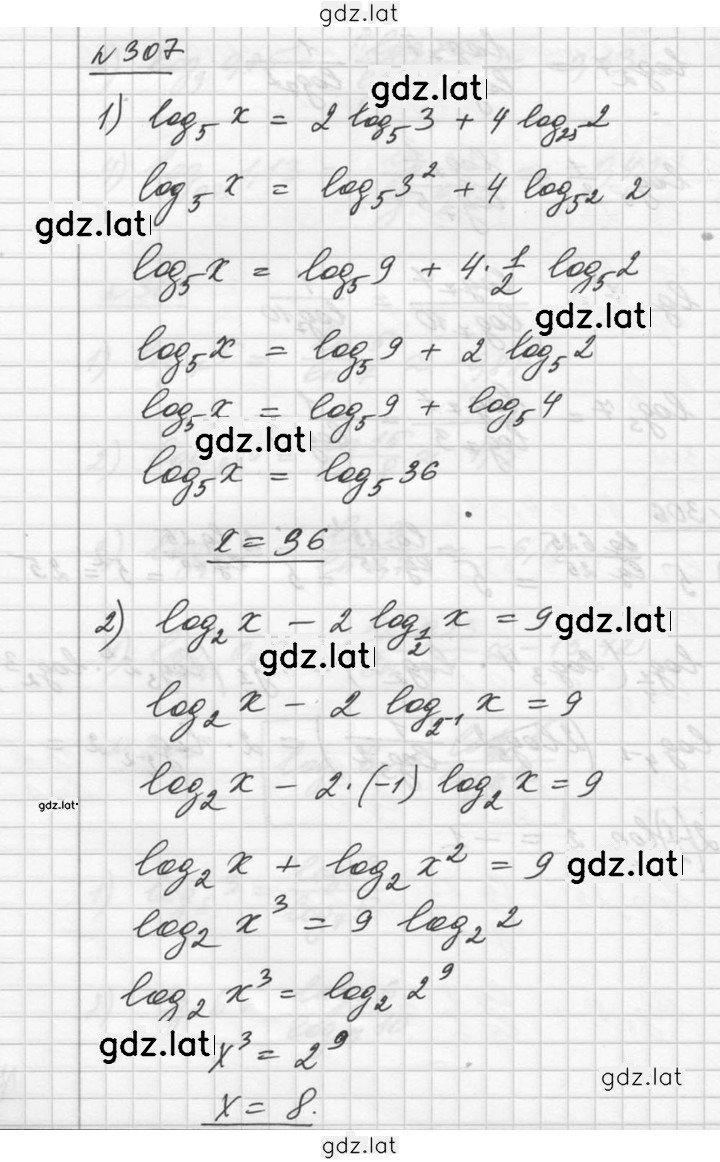 gdz.lat
№307
gdz.lat
1) log₅ x = 2 log₅ 3 + 4 log₂₅ 2
log₅ x = log₅ 3² + 4 log₅² 2
gdz.lat
log₅ x = log₅ 9 + 4 · 1/2 log₅ 2
gdz.lat
log₅ x = log₅ 9 + 2 log₅ 2
log₅ x = log₅ 9 + log₅ 4
gdz.lat
log₅ x = log₅ 36
x = 36
2) log₂ x − 2 log_{1/2} x = 9
gdz.lat
gdz.lat
log₂ x − 2 log_{2⁻¹} x = 9
log₂ x − 2 · (−1) log₂ x = 9
gdz.lat
log₂ x + log₂ x² = 9
gdz.lat
log₂ x³ = 9 log₂ 2
log₂ x³ = log₂ 2⁹
gdz.lat
x³ = 2⁹
gdz.lat
x = 8.
gdz.lat